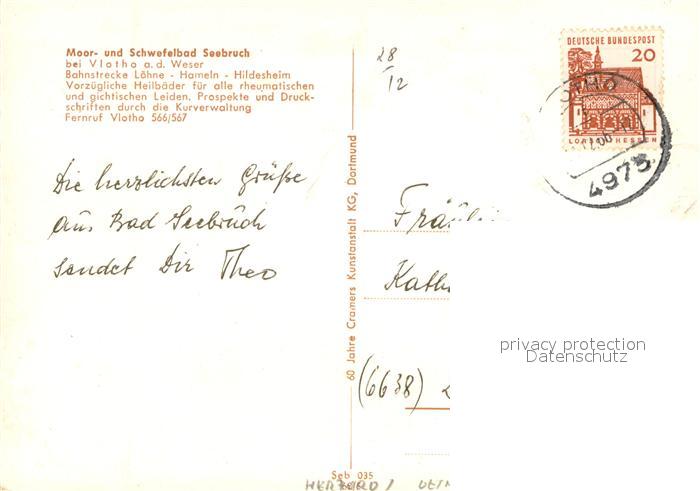 Moor- und Schwefelbad Seebruch
bei Vlotho a. d. Weser
Bahnstrecke Löhne - Hameln - Hildesheim
Vorzügliche Heilbäder für alle rheumatischen
und gichtischen Leiden. Prospekte und Druck-
schriften durch die Kurverwaltung
Fernruf Vlotho 566/567
28
/
12
DEUTSCHE BUNDESPOST
20
LORSCH HESSEN
4973
Die herzlichsten Grüße
aus Bad Seebruch
sendet Dir Theo
60 Jahre Cramers Kunstanstalt KG, Dortmund
(6638)
privacy protection
Datenschutz
Seb 035